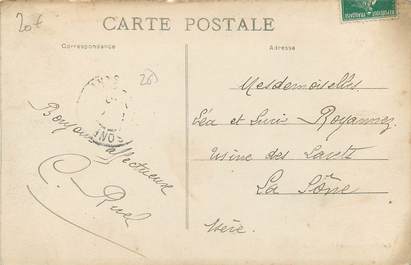 20f
CARTE POSTALE
Correspondance
Adresse
26
Bonjour affectueux
C. Ruel
Mesdemoiselles
Léa et Lucie Royannez
Usine des
La Sône
Isère